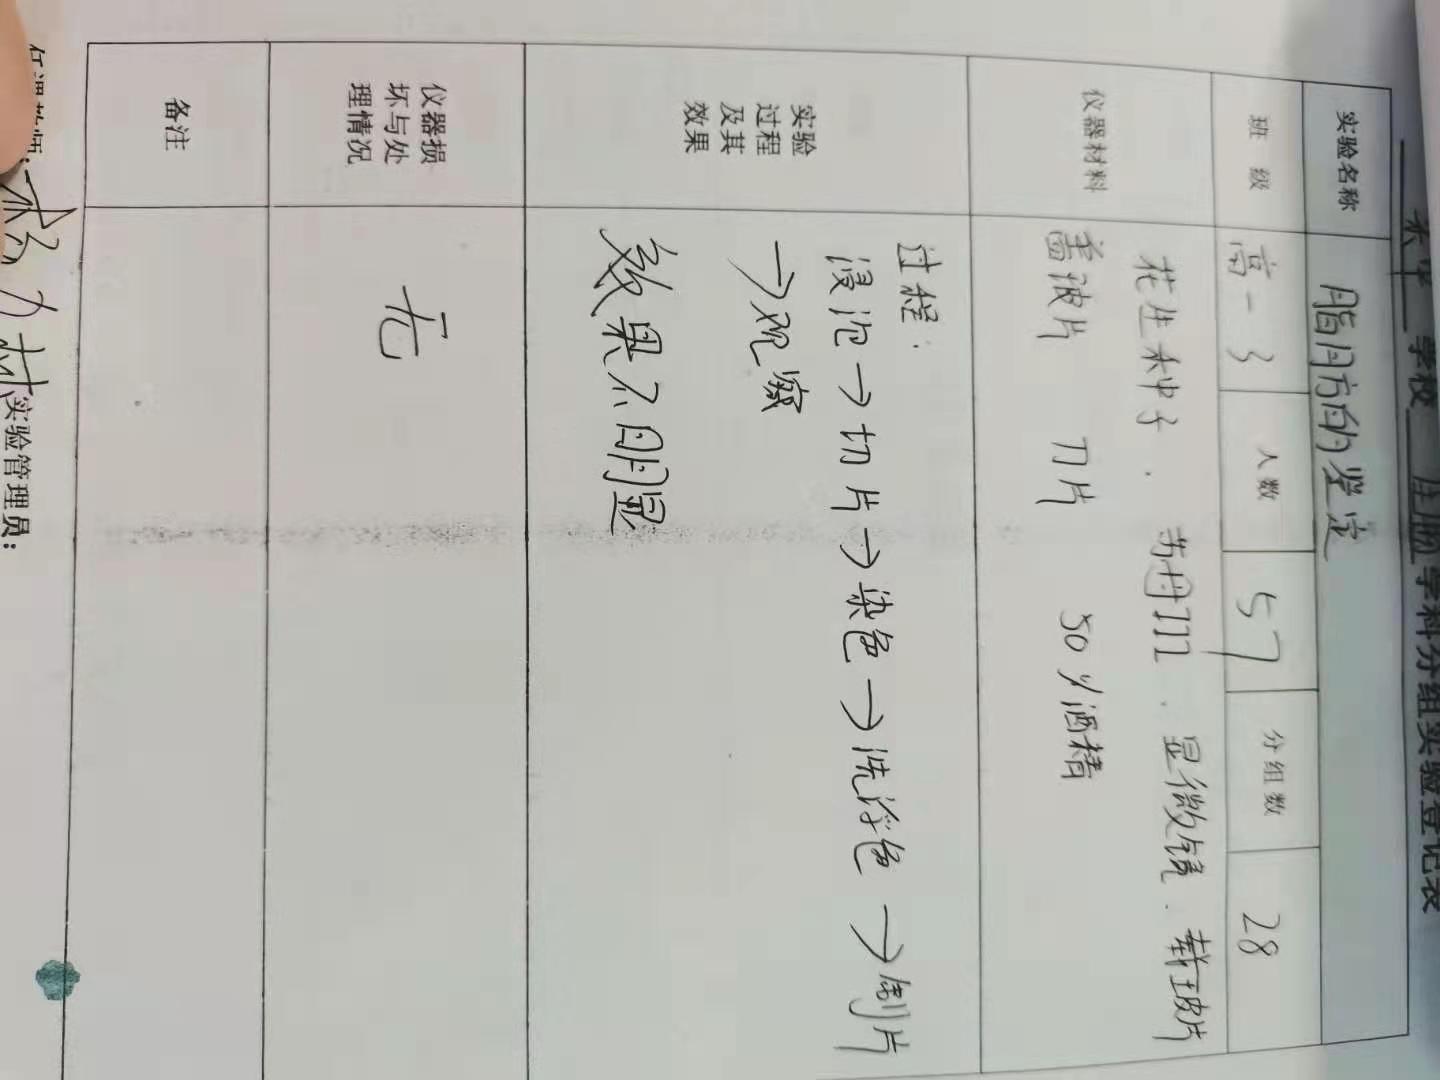 学校 学科分组实验登记表
实验名称 脂肪的鉴定
班 级 高一 3 人数 57 分组数 28
仪器材料 花生种子 . 苏丹III . 显微镜 . 载玻片
盖波片 刀片 50%酒精
实验过程及其效果 过程:
浸泡→切片→染色→洗浮色→制片
→观察
效果不明显
仪器损坏与处理情况 无
备注
任课教师: 实验管理员: